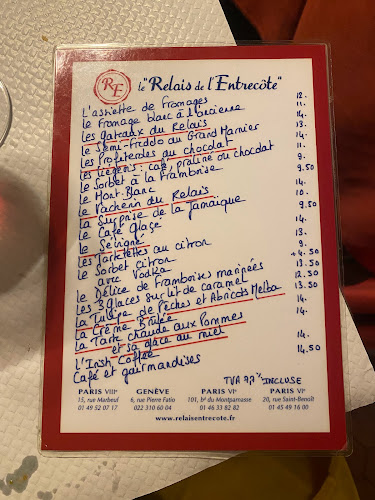 RE
le "Relais de l'Entrecôte"
L'assiette de fromages 12.
le fromage blanc à l'ancienne 11.
Les gateaux du Relais 14.
le Semi-Freddo au Grand Marnier 13.
Les Profiteroles au chocolat 14.
Les Liégeois : café, praline ou chocolat 11.
le Sorbet à la framboise 9.
le Mont-Blanc 9.50
le Vacherin du Relais 14.
La Surprise de la Jamaïque 10.
le Café Glacé 9.50
le Sévigné 14.
Les Tartelettes au citron 13.
le Sorbet citron 9.
avec Vodka +4.50
le Délice de framboises marinées 13.50
les 3 glaces sur lit de caramel 12.50
la Tulipe de Pêches et Abricots Melba 13.50
la Crème Brûlée 14.
la Tarte chaude aux Pommes 14.
et sa glace au miel
L'Irish Coffee 14.
Café et gourmandises 14.50
TVA % INCLUSE
PARIS VIIIe GENÈVE PARIS VIe PARIS VIe
15, rue Marbeuf 6, rue Pierre Fatio 101, bd du Montparnasse 20, rue Saint-Benoît
01 49 52 07 17 022 310 60 04 01 46 33 82 82 01 45 49 16 00
www.relaisentrecote.fr